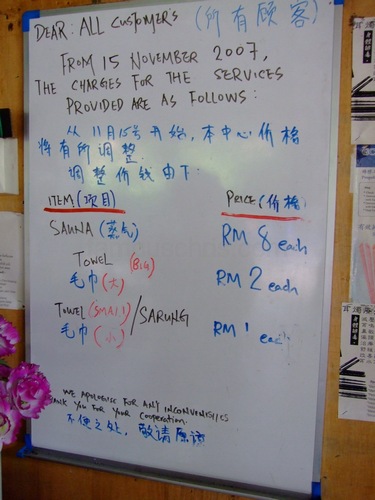 DEAR: ALL CUSTOMER'S (所有顾客)
FROM 15 NOVEMBER 2007,
THE CHARGES FOR THE SERVICES
PROVIDED ARE AS FOLLOWS:
从11月15号开始,本中心价格
将有所调整.
调整价钱由下:
ITEM (项目) PRICE (价格)
SAUNA (蒸气) RM 8 each
TOWEL (BIG)
毛巾 (大) RM 2 each
TOWEL (SMALL) / SARUNG
毛巾 (小) RM 1 each
WE APOLOGISE FOR ANY INCONVENIENCES
THANK YOU FOR YOUR COOPERATION.
不便之处, 敬请原谅